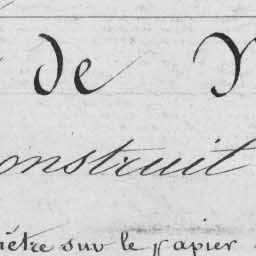 de
onstruit
ètre sur le papier